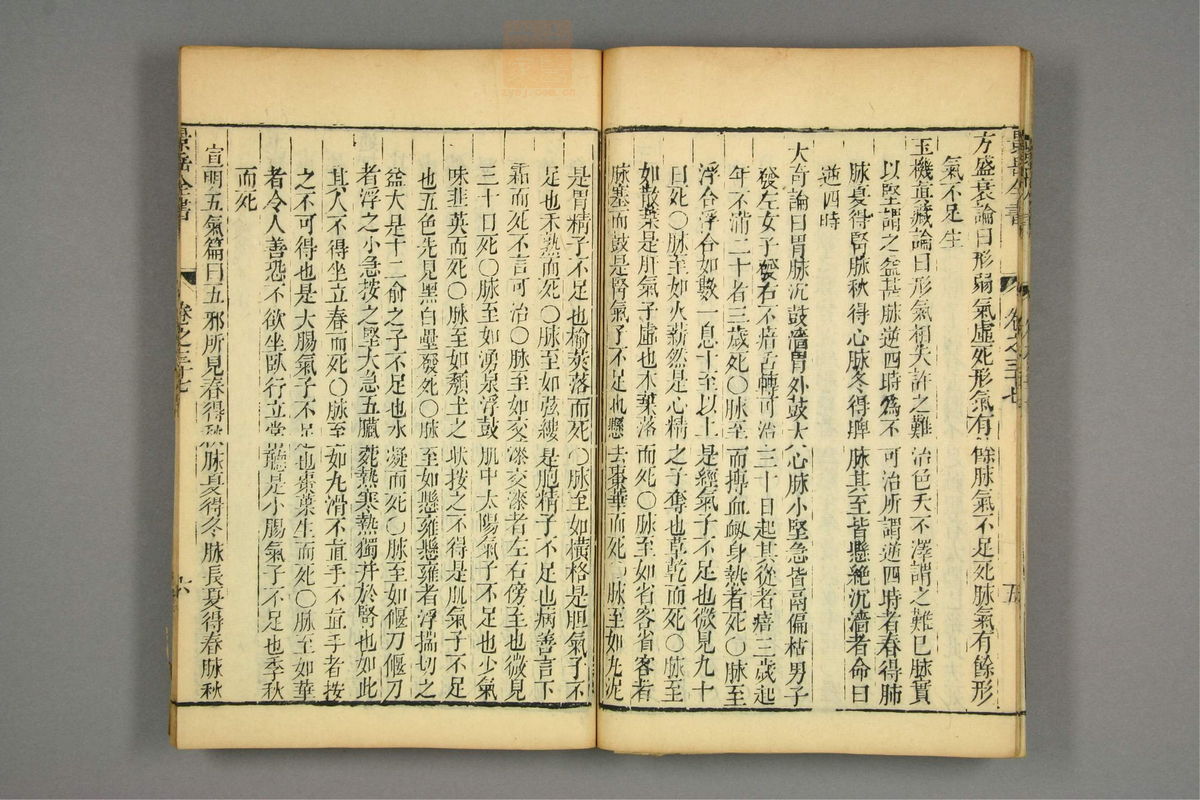 景岳全書 卷之三十七 五
方盛衰論曰形弱氣虛死形氣有餘脉氣不足死脉氣有餘形
氣不足生
玉機眞藏論曰形氣相失謂之難治色夭不澤謂之難已脉實
以堅謂之益甚脉逆四時爲不可治所謂逆四時者春得肺
脉夏得腎脉秋得心脉冬得脾脉其至皆懸絶沉濇者命曰
逆四時
大奇論曰胃脉沉鼓濇胃外鼓大心脉小堅急皆鬲偏枯男子
發左女子發右不瘖舌轉可治三十日起其從者瘖三歲起
年不滿二十者三歲死〇脉至而搏血衂身熱者死〇脉至
浮合浮合如數一息十至以上是經氣予不足也微見九十
日死〇脉至如火薪然是心精之予奪也草乾而死〇脉至
如散葉是肝氣予虛也木葉落而死〇脉至如省客省客者
脉塞而鼓是腎氣予不足也懸去棗華而死〇脉至如丸泥
是胃精予不足也榆莢落而死〇脉至如橫格是胆氣予不
足也禾熟而死〇脉至如弦縷是胞精予不足也病善言下
霜而死不言可治〇脉至如交漆交漆者左右傍至也微見
三十日死〇脉至如湧泉浮鼓肌中太陽氣予不足也少氣
味韭英而死〇脉至如頹土之狀按之不得是肌氣予不足
也五色先見黑白壘發死〇脉至如懸雍懸雍者浮揣切之
益大是十二俞之予不足也水凝而死〇脉至如偃刀偃刀
者浮之小急按之堅大急五臟菀熱寒熱獨并於腎也如此
其人不得坐立春而死〇脉至如丸滑不直手不直手者按
之不可得也是大腸氣予不足也棗葉生而死〇脉至如華
者令人善恐不欲坐臥行立常聽是小腸氣予不足也季秋
而死
宣明五氣篇曰五邪所見春得秋脉夏得冬脉長夏得春脉秋
景岳全書 卷之三十七 六
zysj.com.cn